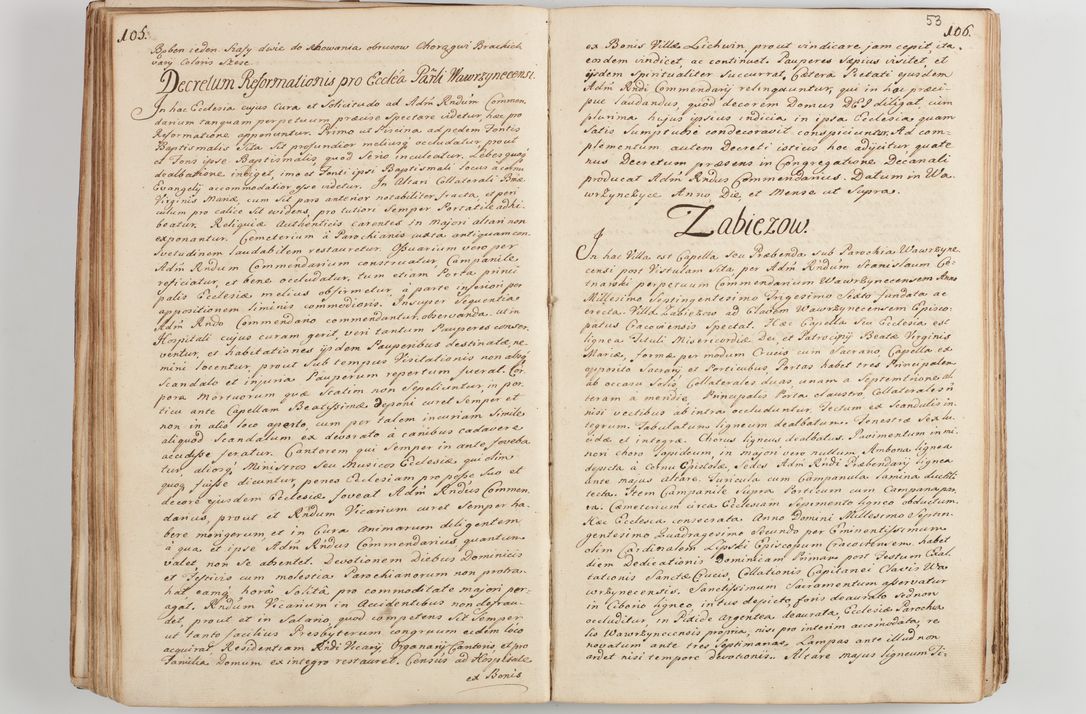 105.
Boben ieden. Szafy dwie do chowania obrusow Chorągwi Brackich
varij Coloris Szesc.
Decretum Reformationis pro Eccl͠a Par͠li Wawrzynecensi.
In hac Ecclesia cujus Cura et Solicitudo ad Adm͠ R͠ndum Commen
darium tanquam perpetuum præcise Spectare videtur, hæc pro
Reformatione apponuntur. Primo ut Piscina ad pedem Fontis
Baptismalis Sita Sit profundior meliusq͠ occludatur, prout
et Fons ipse Baptismalis, quod Serio inculcatur. Lebes quoq͠
dealbatione indiget, imo et Fonti ipsi Baptismali locus à cornu
Evangelij accommodatior esse videtur. In Altari Collaterali B͠mæ
Virginis Mariæ, cum Sit pars anterior notabiliter fracta, et peri
culum pro calice Sit evidens, pro tutiori Semper Portatile adhi
beatur. Reliquiæ Authenticis carentes in majori altari non
exponantur. Cæmeterium à Parochianis iuxta antiquam con
Svetudinem laudabilem restauretur. Ossuarium vero per
Adm͠ R͠ndum Commendarium construatur, Campanile
reficiatur, et bene occludatur, tum etiam Porta princi
palis Ecclesiæ melius obfirmetur à parte inferiori per
appositionem liminis commodioris. Insuper Sequentia
Adm͠ R͠ndo Commendario commendantur observanda. ut in
Hospitali cujus curam gerit, veri tantum Pauperes conser
ventur, et habitationes ijsdem Pauperibus destinatæ, ne
mini locentur, prout Sub tempus Visitationis non absq͠
Scandalo et injuria Pauperum repertum fuerat. Cor
pora Mortuorum quæ Statim non Sepeliuntur, in por
ticu ante Capellam Beatissimæ deponi curet Semper et
non in alio loco aperto, cum per talem incuriam Simile
aliquod Scandalum ex devorato à canibus cadavere
accidisse feratur. Cantorem qui Semper in ante foveba
tur aliosq͠ Ministros Seu Musicos Ecclesiæ, qui olim
quoq͠ fuisse dicuntur, penes Ecclesiam pro posse Suo et
decore ejusdem Ecclesiæ foveat Adm͠ R͠ndus Commen
darius, prout et R͠ndum Vicarium curet Semper ha
bere morigerum et in Cura animarum diligentem
à qua et ipse Adm͠ R͠ndus Commendarius quantum
valet, non Se absentet. Devotionem Diebus Dominicis
et Festivis cum molestia Parochianorum non protra
hat eamq͠ horâ Solitâ pro commoditate majori per
agat. R͠ndum Vicarium in Accidentibus non defrau
det, prout et in Salario, quod competens Sit Semper
ut tanto facilius Presbyterum congruum eidem loco
acquirat. Residentiam R͠ndi Vicarij, Organarij Cantoris, et pro
Familia Domum ex integro restauret. Census ad Hospitale
ex Bonis
53
106.
ex Bonis Villæ Lichwin, prout vindicare jam cepit, ita
eosdem vindicet, ac continuet. Pauperes Sæpius visitet, et
ijsdem Spiritualiter Succurrat, Cætera Pietati ejusdem
Adm͠ R͠ndi Commendarij relinquuntur, qui in hoc præci
pue laudandus, quod decorem Domus DEI diligat, cum
plurima hujus ipsius indicia in ipsa Ecclesia quam
Satis Sumptuose condecoravit conspiciuntur. Ad com-
plementum autem Decreti istius hoc adijcitur, quate
nus Decretum præsens in Congregatione Decanali
producat Adm͠ R͠ndus Commendarius. Datum in Wa
wrzynczyce Anno Die, et Mense ut Supra.
Zabiezow.
In hac Villa est Capella Seu Præbenda Sub Parochia Wawrzyne
censi post Vistulam Sita, per Adm͠ R͠ndum Stanislaum
perpetuum Commendarium Wawrzynecensem Anno
Millesimo Septingentesimo Trigesimo Sexto fundata ac
erecta. Villa Zabiezow ad Clavem Wawrzynecensem Episco-
patus Cracoviensis Spectat. Hæc Capella Seu Ecclesia est
lignea Tituli Misericordiæ Dei, et Patrocinij Beatæ Virginis
Mariæ, formæ per modum Crucis cum Sacrario, Capella ex
opposito Sacrarij et Porticubus, Portas habet tres Principalem
ab occasu Solis, Collaterales duas, unam a Septemtrione al
teram a meridie, Principalis Porta claustro, Collaterales n͠
nisi vectibus ab intra occluduntur. Tectum ex Scandulis in-
tegrum. Tabulatum ligneum dealbatum. Fenestræ Sex lu
cidæ et integræ. Chorus ligneus dealbatus. Pavimentum in mi
nori choro lapideum, in majori vero nullum. Ambona lignea
depicta à cornu Epistolæ, Sedes Adm͠ R͠ndi Præbendarij lignea
ante majus altare. Turricula cum Campanula lamina ductili
tecta. Item Campanile Supra Porticum cum Campana par
va. Cæmeterium circa Ecclesiam Sepimento ligneo obductum.
Hæc Ecclesia consecrata Anno Domini Millesimo Septin-
gentesimo Quadragesimo Secundo per Eminentissimum
olim Cardinalem Lipski Episcopum Cracoviensem, habet
diem Dedicationis Dominicam Primam post Festum Exal
tationis Sanctæ Crucis, Collationis Capitanei Clavis Wa
wrzynecensis. Sanctissimum Sacramentum asservatur
in Ciborio ligneo intus depicto foris deaurato Sed non
occluditur, in Pixide argentea deaurata, Ecclesiæ Parochia
lis Wawrzynecensis propria, nisi pro interim accomodata, re
novatum ante tres Septimanas. Lampas ante illud non
ardet nisi tempore devotionis. Altare majus ligneum Ti-